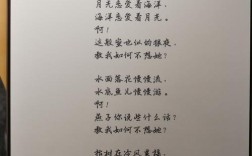 月光恋爱着海洋，
海洋恋爱着月光。
啊！
这般蜜也似的银夜，
教我如何不想她？
水面落花慢慢流，
水底鱼儿慢慢游。
啊！
燕子你说些什么话？
教我如何不想她？
枯树在冷风里摇，